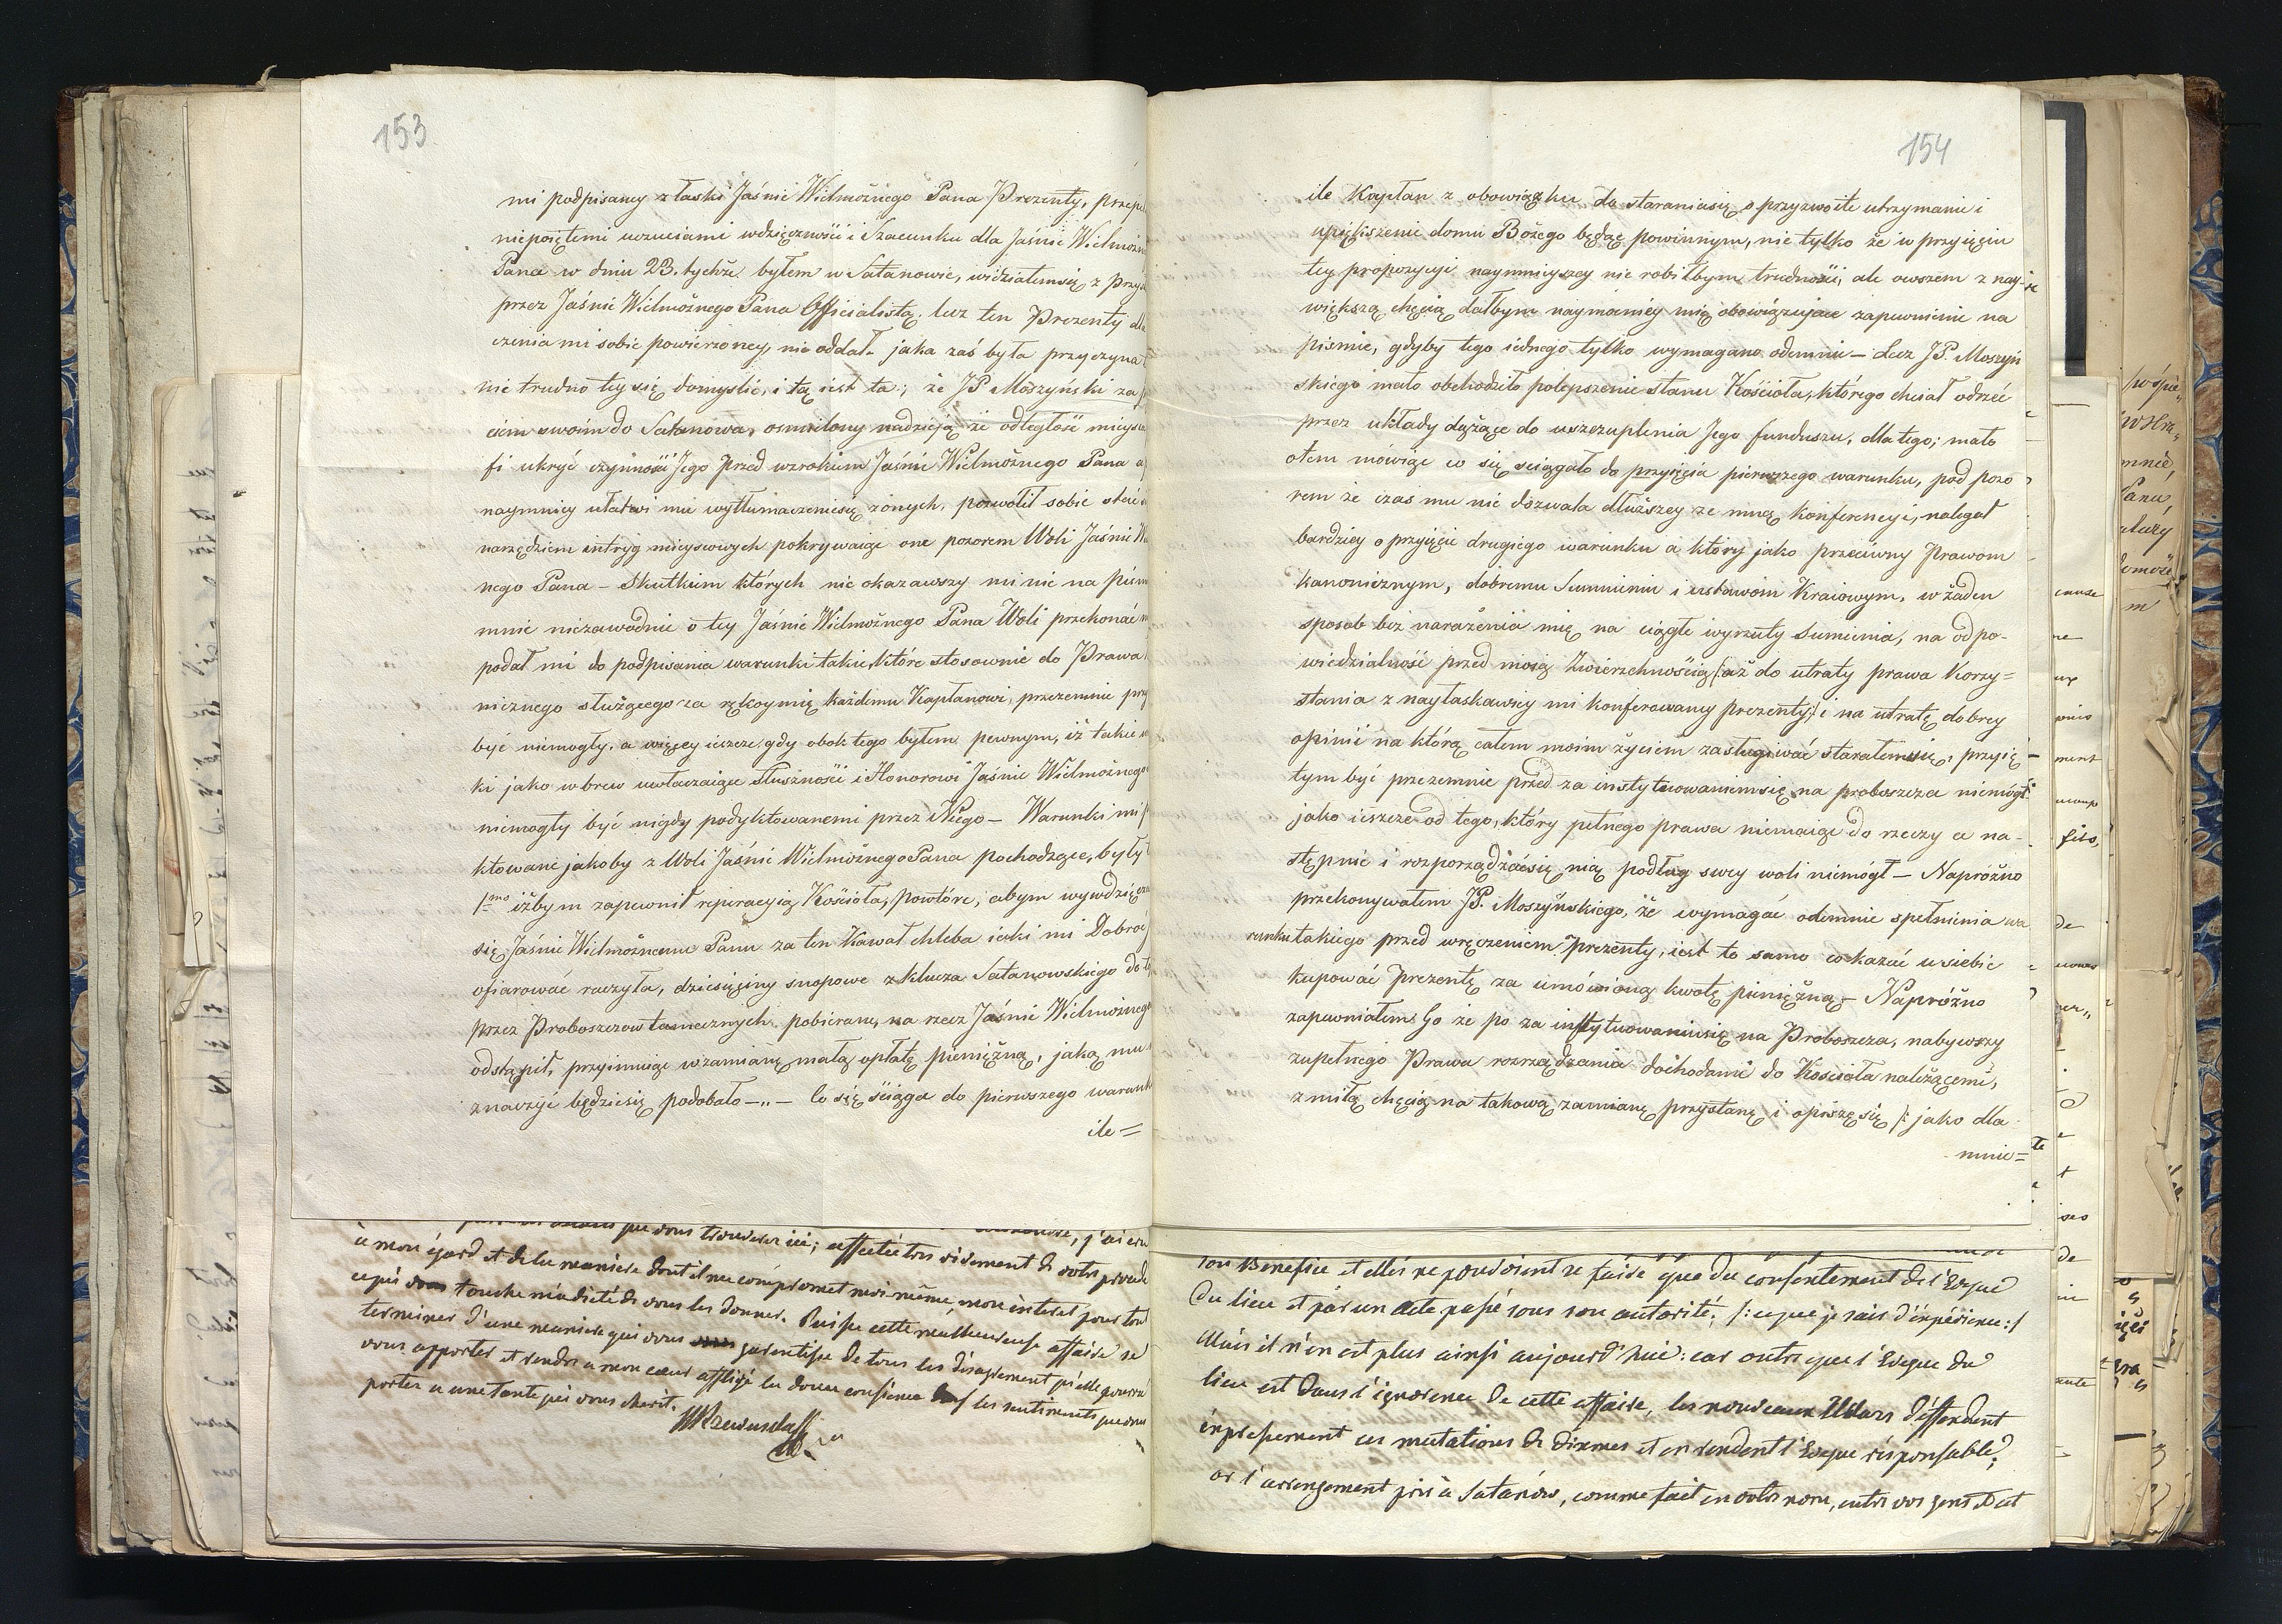 153
mi podpisaney z łaski Jaśnie Wielmożnego Pana Prezenty, przepeł
niepojętemi uczuciami wdzięczności i Szacunku dla Jaśnie Wielmożn
Pana w dniu 23. tychże byłem w Satanowie, widziałemsię z Przys
przez Jaśnie Wielmożnego Pana Officialistą. lecz ten Prezenty dla
czenia mi sobie powierzoney, nie oddał. jaka zaś była przyczyna
nie trudno tey się domyslić, i tą iest ta; że JP Moszyński za
ciem swoim do Satanowa, osmielony nadzieją że odległość mieysca
fi ukryć czynności Jego przed wzrokiem Jaśnie Wielmożnego Pana a
naymniey ułatwi mu wytłumaczeniesię z onych, pozwolił sobie stać
narzędziem intryg mieyscowych pokrywaiąc one pozorem Woli Jaśnie W
nego Pana – Skutkiem których nie okazawszy mi nic na piśm
mnie niezawodnie o tey Jaśnie Wielmożnego Pana Woli przekonać
podał mi do podpisania warunki takie, które stosownie do Prawa
nicznego służącego za rękoymię każdemu Kapłanowi, przezemnie przy
być niemogły, a więcey ieszcze gdy obok tego byłem pewnym, iż takie
ki jako wbrew uwłaczaiące słuszności i Honorowi Jaśnie Wielmożnego
niemogły być nigdy podyktowanemi przez Niego – Warunki mi
ktowane jakoby z Woli Jaśnie Wielmożnego Pana pochodzące, były
1mo iżbym zapewnił reperacyią Kościoła, powtóre; abym wywdzięcza
się Jaśnie Wielmożnemu Panu za ten Kawał chleba iaki mi Dobroć
ofiarować raczyła, dziesięciny snopowe z klucza Satanowskiego do
przez Proboszczow tamecznych pobierane, na rzecz Jaśnie Wielmożnego
odstąpił, przyimuiąc w zamianę małą opłatę pieniężną, jaką mu
znaczyć będziesię podobało –„– Co się ściąga do pierwszego warunk
ile =
à mon égard et de la maniere dont il me compromet moi-même, mon interet pour tout
ce qui vous touche m'a dicté de vous les donner. Puisse cette malheureuse affaire se
terminer d'une maniere qui vous garentisse de tous les désagrement qu'elle pourrai
vous apporter et rendre a mon cœur affligé la douce confience les sentiments que vous
portez a une tante qui vous cherit.
154
ile Kapłan z obowiązku do staraniasię o przyzwoite utrzymanie i
upiększenie domu Bożego będąc powinnym, nie tylko że w przyięciu
tey propozycyi naymnieyszey nie robiłbym trudności, ale owszem z nay-
większą chęcią dałbym naymocniey mię obowiązujące zapewnienie na
pismie, gdyby tego iednego tylko wymagano odemnie – Lecz JP. Moszyń
skiego mało obchodziło polepszenie stanu Kościoła, którego chciał odrzeć
przez układy dążące do uszczuplenia Jego funduszu, dla tego; mało
otem mówiąc co się sciągało do przyięcia pierwszego warunku, pod pozo
rem że czas mu nie dozwala dłuższey ze mną Konferencyi, nalegał
bardziey o przyięcie drugiego warunku a który jako przeciwny Prawom
kanonicznym, dobremu Sumnieniu i ustawom Kraiowym, w żaden
sposob bez narażenia mię na ciągłe wyrzuty Sumienia, na odpo-
wiedzialność przed moią Zwierzchnością /: aż do utraty prawa Korzy=
stania z nayłaskawiey mi konferowaney prezenty :/ i na utratę dobrey
opinii na którą całem moim życiem zasługiwać starałemsię, przyię
tym być przezemnie przed za instytuowaniemsię na proboszcza niemógł
jako ieszcze od tego, który pełnego prawa niemaiąc do rzeczy a na-
stępnie i rozporządzaćsię nią podług swey woli niemógł – Napróżno
przekonywałem JP. Moszyńskiego, że wymagać odemnie spełnienia wa
runku takiego przed wręczeniem Prezenty, iest to samo co kazać u siebie
kupować Prezentę za umówioną kwotę pieniężną – Napróżno
zapewniałem Go że po za instytuowaniusię na Proboszcza, nabywszy
zupełnego Prawa rozrządzania dochodami do Kościoła należącemi,
z miłą chęcią na takową zamianę przystanę i opiszę się /: jako dla
mnie =
son Benefice et elles ne pouvoient se faire que du consentement de l'Eveque
du lieu et par un acte passé sous son autorité; /: ce que je sais d'expérience :/
Mais il n'en est plus ainsi aujourd'hui: car outre que l'Eveque du
lieu est dans l'ignorence de cette affaire, les nouveaux Ukases deffendent
expressement ces mutations de dixmes et en rendent l'Eveque résponsable;
or l'arrengement pris à Satanów, comme fait en votre nom, entre vos gens et cet